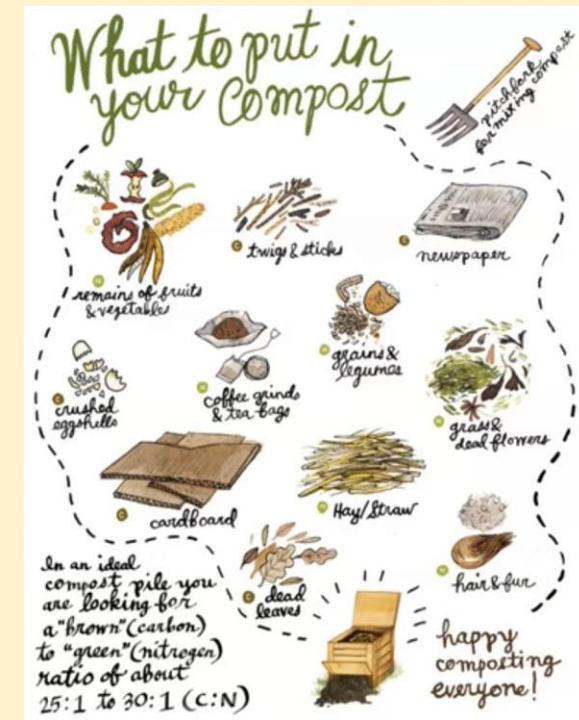 What to put in
your compost
pitchfork
for mixing compost
C
twigs & sticks
C
newspaper
N
remains of fruits
& vegetables
N
grains &
legumes
C
crushed
eggshells
N
coffee grinds
& tea bags
N
grass &
dead flowers
C
cardboard
N
Hay/Straw
C
dead
leaves
N
hair & fur
In an ideal
compost pile you
are looking for
a "brown" (carbon)
to "green" (nitrogen)
ratio of about
25:1 to 30:1 (C:N)
happy
composting
everyone!